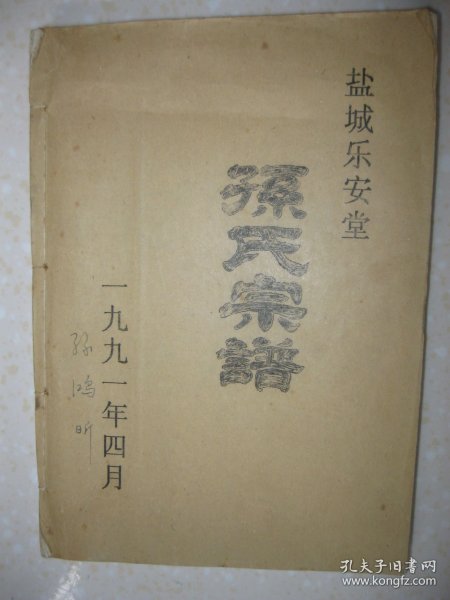 盐城乐安堂
孫氏宗譜
一九九一年四月
孫鸿昕
孔夫子旧书网
www.kongfz.com